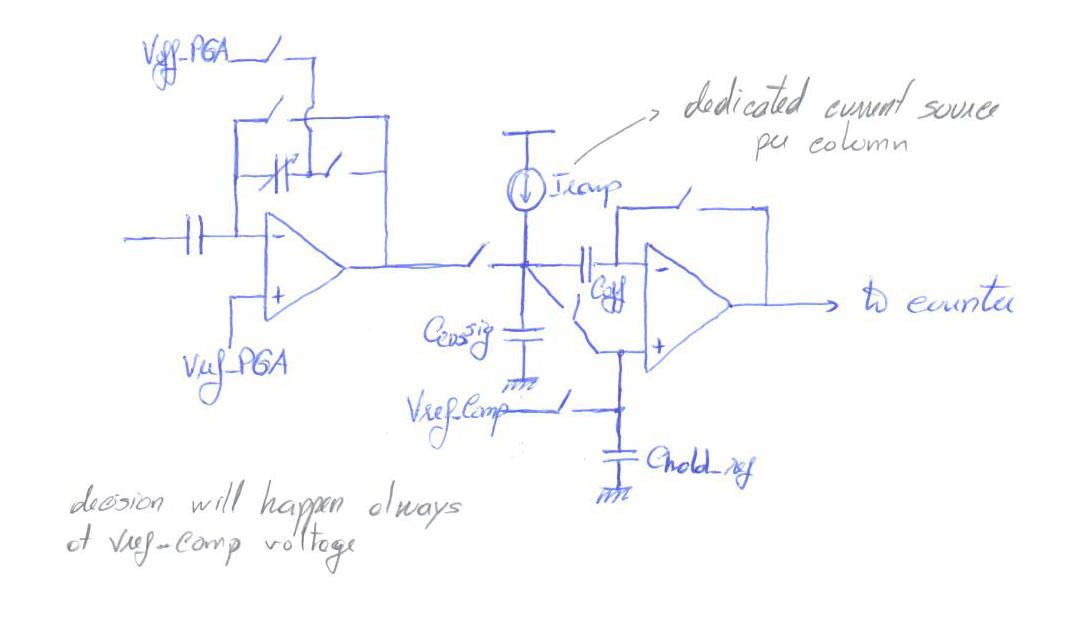 Voff_PGA
dedicated current source
per column
Iramp
Coff
to counter
Vref_PGA
Vref_Comp
Chold_ref
decision will happen always
at Vref-Comp voltage
-
+
-
+